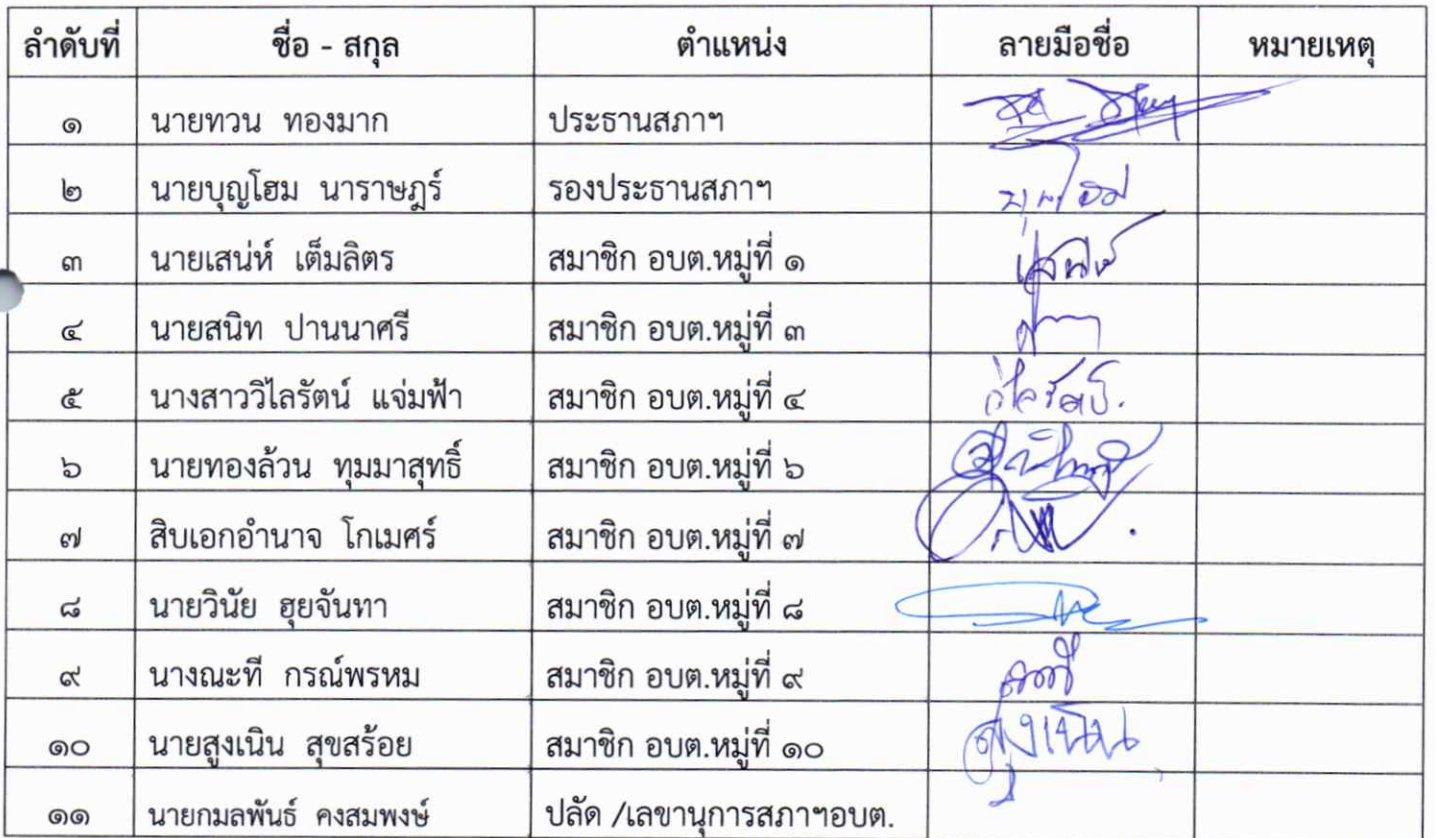 ลำดับที่ ชื่อ - สกุล ตำแหน่ง ลายมือชื่อ หมายเหตุ
๑ นายทวน ทองมาก ประธานสภาฯ
๒ นายบุญโฮม นาราษฎร์ รองประธานสภาฯ บุญโฮม
๓ นายเสน่ห์ เต็มลิตร สมาชิก อบต.หมู่ที่ ๑ เสน่ห์
๔ นายสนิท ปานนาศรี สมาชิก อบต.หมู่ที่ ๓
๕ นางสาววิไลรัตน์ แจ่มฟ้า สมาชิก อบต.หมู่ที่ ๔ วิไลรัตน์
๖ นายทองล้วน ทุมมาสุทธิ์ สมาชิก อบต.หมู่ที่ ๖
๗ สิบเอกอำนาจ โกเมศร์ สมาชิก อบต.หมู่ที่ ๗
๘ นายวินัย ฮุยจันทา สมาชิก อบต.หมู่ที่ ๘
๙ นางณะที กรณ์พรหม สมาชิก อบต.หมู่ที่ ๙ ณะที
๑๐ นายสูงเนิน สุขสร้อย สมาชิก อบต.หมู่ที่ ๑๐ สูงเนิน
๑๑ นายกมลพันธ์ คงสมพงษ์ ปลัด /เลขานุการสภาฯอบต.